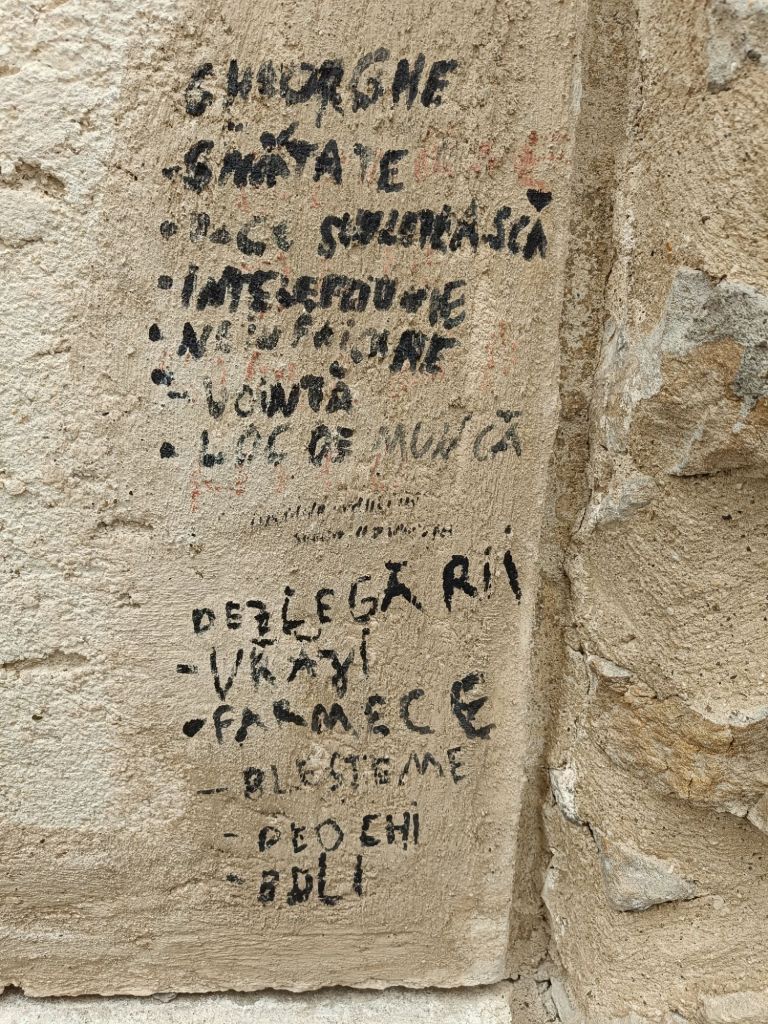 GHEORGHE
- SĂNĂTATE
• PACE SUFLETEASCĂ
• INTELEPCIUNE
• NEINFRICARE
- VOINTĂ
• LOC DE MUNCĂ
DEZLEGĂRII
- VRAJI
• FARMECE
- BLESTEME
- DEOCHI
- BOLI